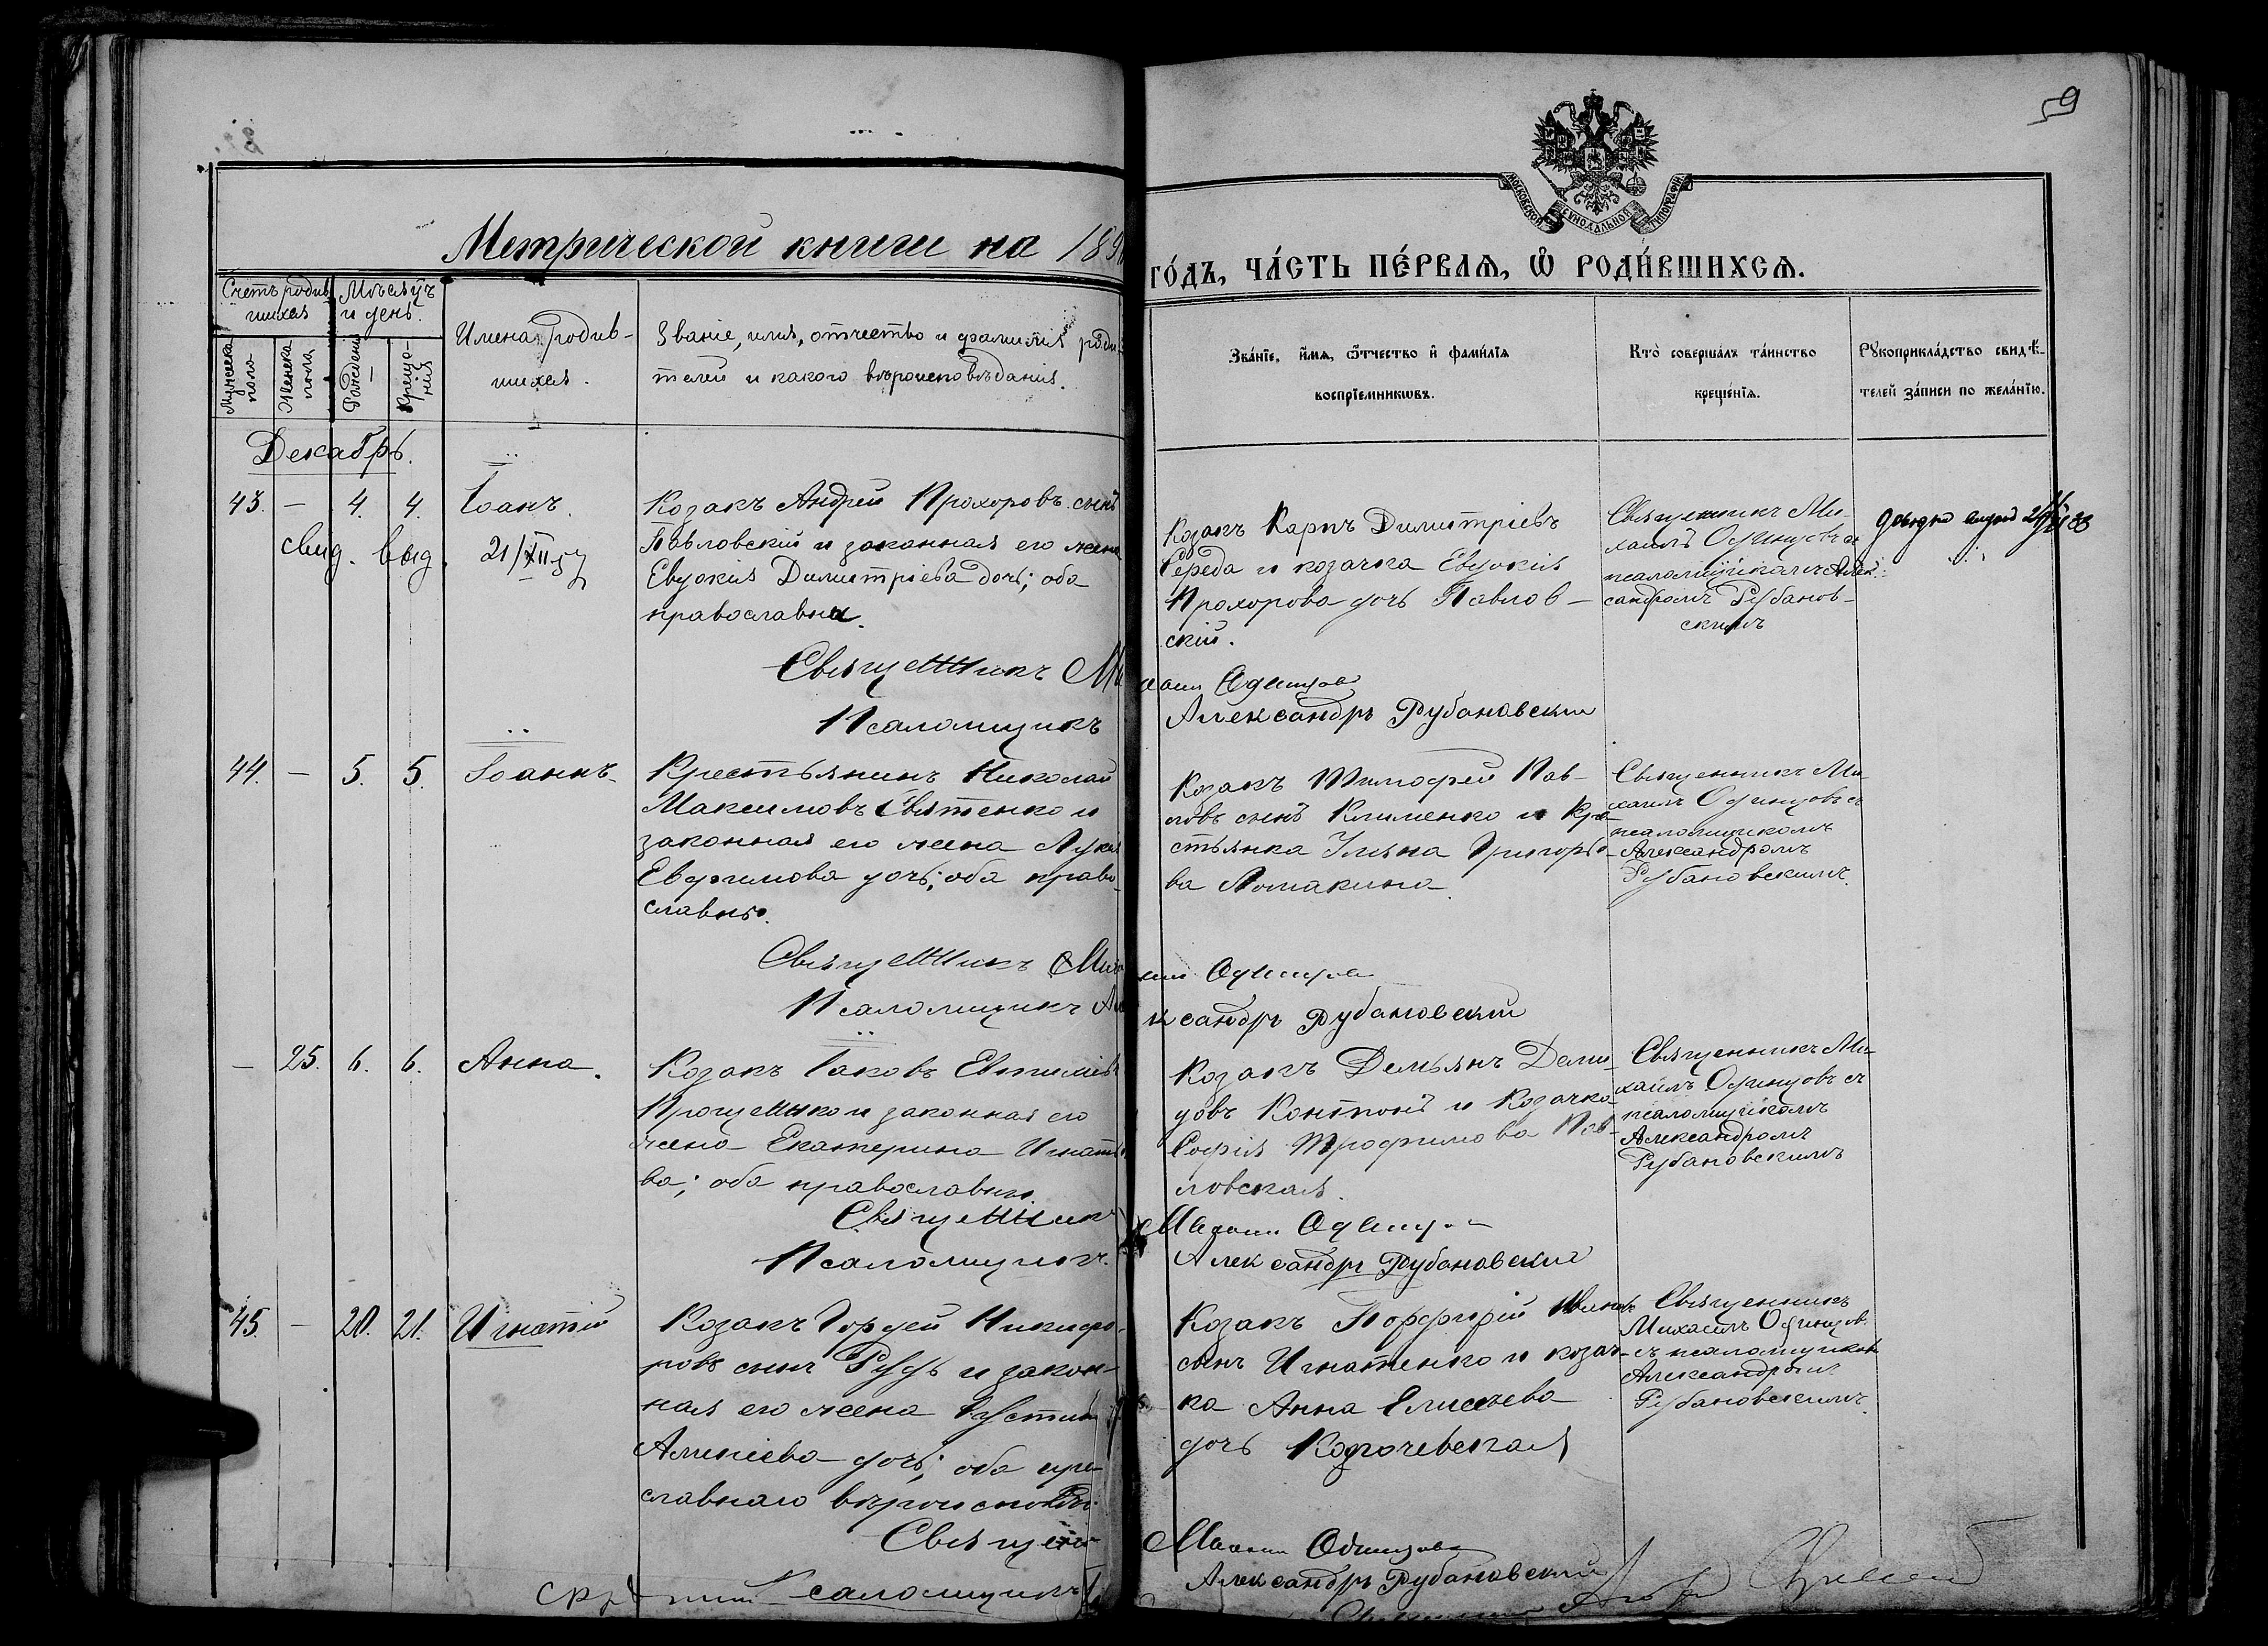 9
МОСКОВСКОЙ СУНОДАЛЬНОЙ ТИПОГРАФІИ
Метрической книги на 189
го́дъ, ча́сть пе́рваѧ, ѡ҆ роди́вшихсѧ.
Счетъ родив-
шихся
Мѣсяцъ
и день.
Мужеска
пола
Женска
пола
Рожденія
Креще-
нія
Имена родив-
шихся.
Званіе, имя, отчество и фамилія роди-
телей и какого вѣроисповѣданія.
Зва́нїе, и҆́мѧ, ѻ҆́тчество и҆ фами́лїѧ
воспрїе́мниковъ.
Кто̀ соверша́лъ та́инство
креще́нїѧ.
Рꙋкоприкла́дство свидѣ́-
телей за́писи по жела́нїю.
Декабрь.
43. – 4. 4. Іоанъ.
свид. выд. 21/XII 57
Козакъ Андрей Прохоровъ сынъ
Павловскій и законная его жена
Евдокія Димитріева дочь; оба
православны.
Козакъ Карпъ Димитріевъ
Середа и козачка Евдокія
Прохорова дочь Павлов-
скій.
Священникъ Ми-
хаилъ Одинцовъ съ
псаломщикомъ Алек-
сандромъ Рубанов-
скимъ
Священникъ Михаил Одинцов
Псаломщикъ Александръ Рубановский
44. – 5. 5. Іоаннъ.
Крестьянинъ Николай
Максимовъ Святенко и
законная его жена Лукія
Евфимова дочь; оба право-
славные.
Козакъ Тимофей Пав-
ловъ сынъ Клименко и Кре-
стьянка Ульяна Григорье-
ва Ломакина
Священникъ Ми-
хаилъ Одинцовъ съ
псаломщикомъ
Александромъ
Рубановскимъ.
Священникъ Михаил Одинцов
Псаломщикъ Александръ Рубановский
– 25. 6. 6. Анна.
Козакъ Іаковъ Евтиміевъ
Прощенко и законная его
жена Екатерина Игнатье-
ва; оба православные.
Козакъ Демьянъ Деми-
довъ и Козачка
Софія Трофимова Пав-
ловская.
Священникъ Ми-
хаилъ Одинцовъ съ
псаломщикомъ
Александромъ
Рубановскимъ
Священникъ Михаил Одинцов
Псаломщикъ Александръ Рубановский
45. – 20. 21. Игнатій
Козакъ Гордей Никифо-
ровъ сынъ Рудь и закон-
ная его жена Іустина
Алексіева дочь; оба пра-
славнаго вѣроисповѣд.
Козакъ Порфирій Иванов
сынъ Игнатенко и козач-
ка Анна Елисѣева
дочь
Священникъ
Михаилъ Одинцовъ
съ псаломщиком
Александромъ
Рубановскимъ.
Священ Михаил Одинцов
Псаломщикъ Александръ Рубановский